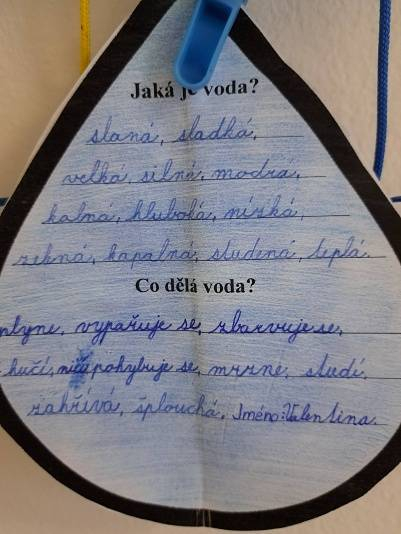 Jaká je voda?
slaná, sladká,
velká, silná, modrá,
kalná, hluboká, nízká,
kapalná, studená, teplá.
Co dělá voda?
plyne, vypařuje se, zbarvuje se,
hučí, ničí, pohybuje se, mrzne, studí,
zahřívá, šplouchá, Jméno: Valentina.